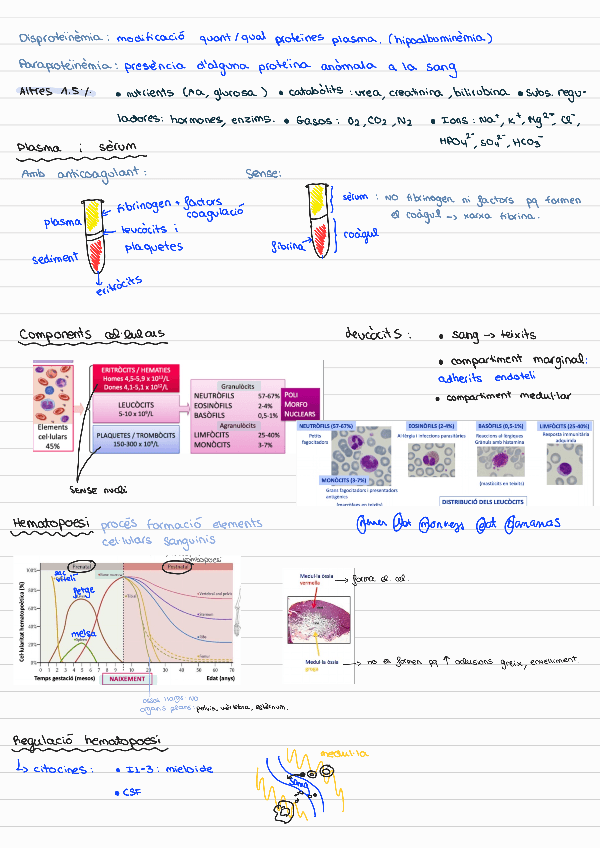 Disproteinèmia: modificació quant/qual proteïnes plasma. (hipoalbuminèmia)
Paraproteinèmia: presència d'alguna proteïna anòmala a la sang
Altres 1.5%. • nutrients (Aa, glucosa) • catabòlits: urea, creatinina, bilirubina • subs. regu-
ladores: hormones, enzims. • Gasos: O2, CO2, N2 • Ions: Na+, K+, Mg2+, Cl-,
HPO4 2-, SO4 2-, HCO3-
Plasma i sèrum
Amb anticoagulant:
Sense:
plasma
fibrinogen + factors
coagulació
leucòcits i
plaquetes
sediment
eritròcits
sèrum : NO fibrinogen ni factors pq formen
el coàgul → xarxa fibrina.
coàgul
fibrina
Components cel·lulars
Leucòcits :
• sang → teixits
• compartiment marginal:
adherits endoteli
• compartiment medul·lar
Elements
cel·lulars
45%
ERITRÒCITS / HEMATIES
Homes 4,5-5,9 x 10¹²/L
Dones 4,1-5,1 x 10¹²/L
LEUCÒCITS
5-10 x 10⁹/L
PLAQUETES / TROMBÒCITS
150-300 x 10⁹/L
Granulòcits
NEUTRÒFILS 57-67%
EOSINÒFILS 2-4%
BASÒFILS 0,5-1%
Agranulòcits
LIMFÒCITS 25-40%
MONÒCITS 3-7%
POLI
MORFO
NUCLEARS
SENSE nucli
NEUTRÒFILS (57-67%)
Petits
fagocitadors
EOSINÒFILS (2-4%)
Al·lèrgia i infeccions parasitàries
BASÒFILS (0,5-1%)
Reaccions al·lèrgiques
Grànuls amb histamina
(mastòcits en teixits)
LIMFÒCITS (25-40%)
Resposta immunitària
adquirida
MONÒCITS (3-7%)
Grans fagocitadors i presentadors
antígens
(macròfags en teixits)
DISTRIBUCIÓ DELS LEUCÒCITS
Hematopoesi procés formació elements
cel·lulars sanguinis
Never Let Monkeys Eat Bananas
Prenatal
Postnatal
sac
vitel·lí
fetge
melsa
Cel·lularitat hematopoètica (%)
100%
80%
60%
40%
20%
0%
0 1 2 3 4 5 6 7 8 9 10 20 30 40 50 60 70
Temps gestació (mesos)
NAIXEMENT
Edat (anys)
ossos llargs: NO
ossos plans: pelvis, vèrtebra, estèrnum.
Medul·la òssia
vermella
→ forma el cel.
Medul·la òssia
groga
→ no en formen pq ↑ adiposos greix, envelliment
Regulació hematopoesi
↳ citocines : • IL-3: mieloide
• CSF
medul·la
sang